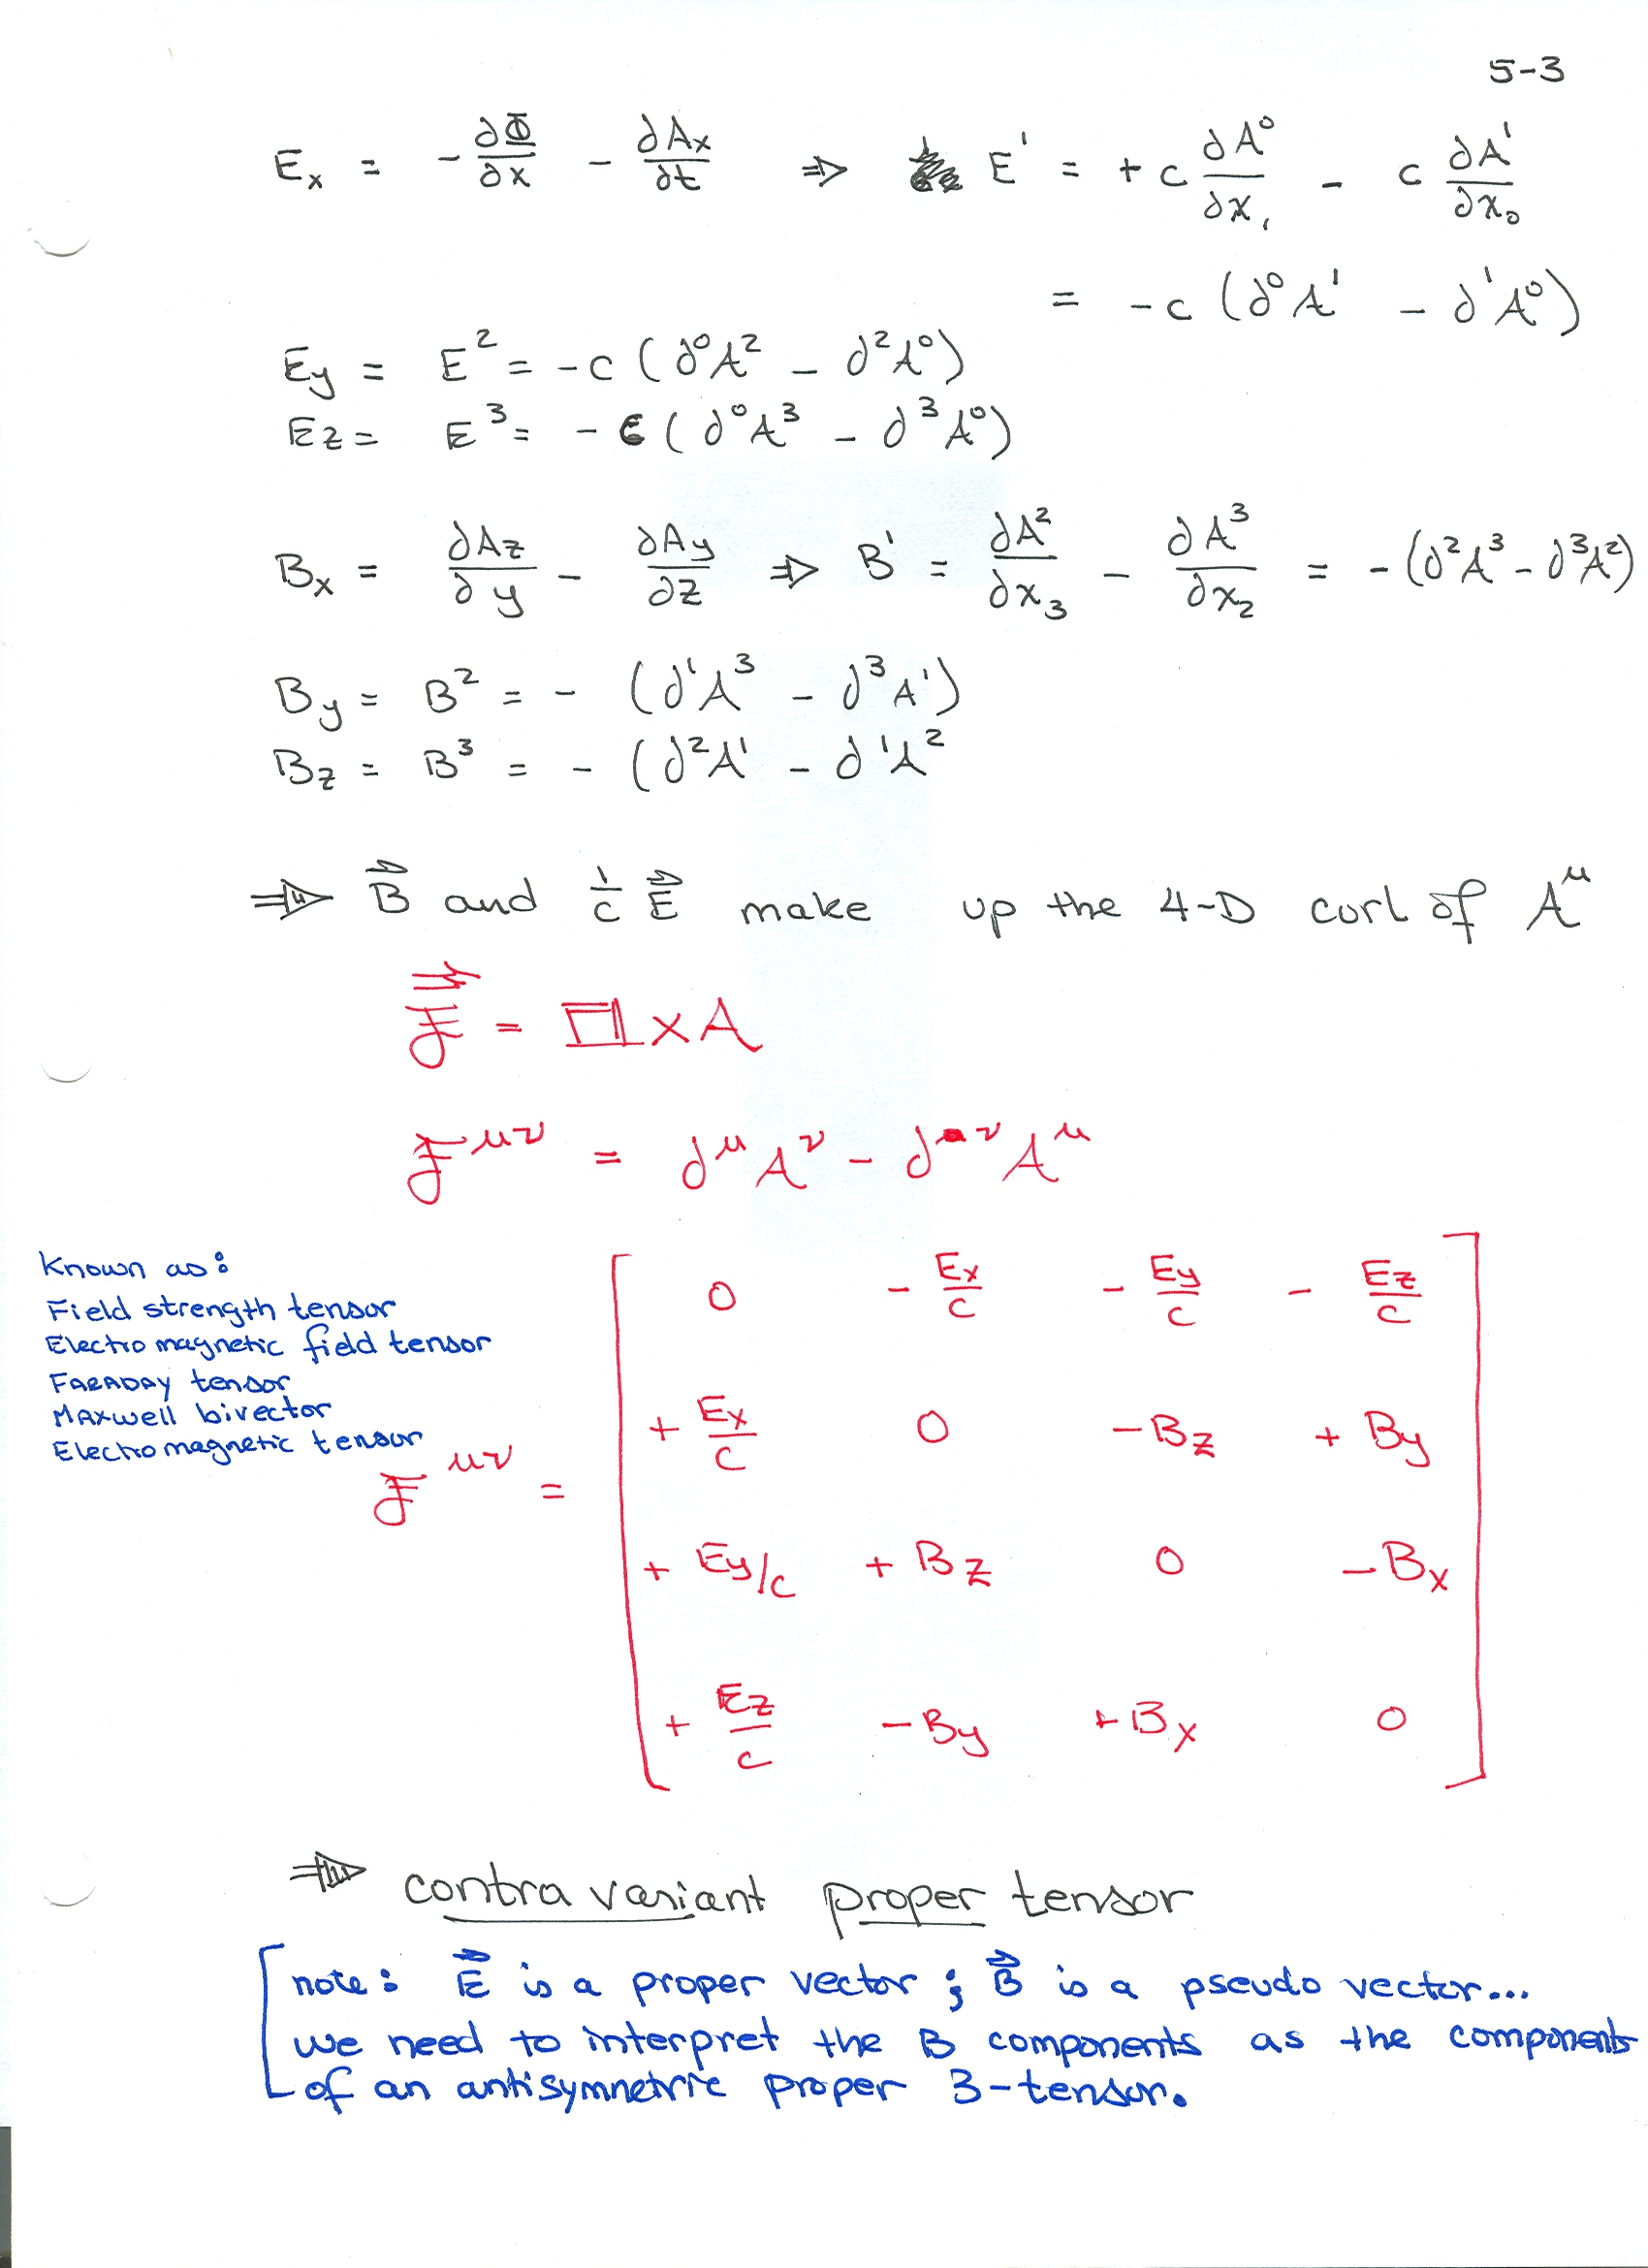 5-3
E_x = -∂Φ/∂x - ∂A_x/∂t ⇒ E^1 = + c ∂A^0/∂x_1 - c ∂A^1/∂x_0
= -c (∂^0 A^1 - ∂^1 A^0)
E_y = E^2 = -c (∂^0 A^2 - ∂^2 A^0)
E_z = E^3 = -c (∂^0 A^3 - ∂^3 A^0)
B_x = ∂A_z/∂y - ∂A_y/∂z ⇒ B^1 = ∂A^2/∂x_3 - ∂A^3/∂x_2 = -(∂^2 A^3 - ∂^3 A^2)
B_y = B^2 = - (∂^1 A^3 - ∂^3 A^1)
B_z = B^3 = - (∂^2 A^1 - ∂^1 A^2
⇒ B⃗ and 1/c E⃗ make up the 4-D curl of A^μ
F = □ x A
F^μν = ∂^μ A^ν - ∂^ν A^μ
Known as:
Field strength tensor
Electromagnetic field tensor
FARADAY tensor
Maxwell bivector
Electromagnetic tensor
F^μν =
0 -E_x/c -E_y/c -E_z/c
+E_x/c 0 -B_z +B_y
+E_y/c +B_z 0 -B_x
+E_z/c -B_y +B_x 0
⇒ contravariant proper tensor
note: E⃗ is a proper vector ; B⃗ is a pseudo vector...
we need to interpret the B components as the components
of an antisymnetric proper 3-tensor.